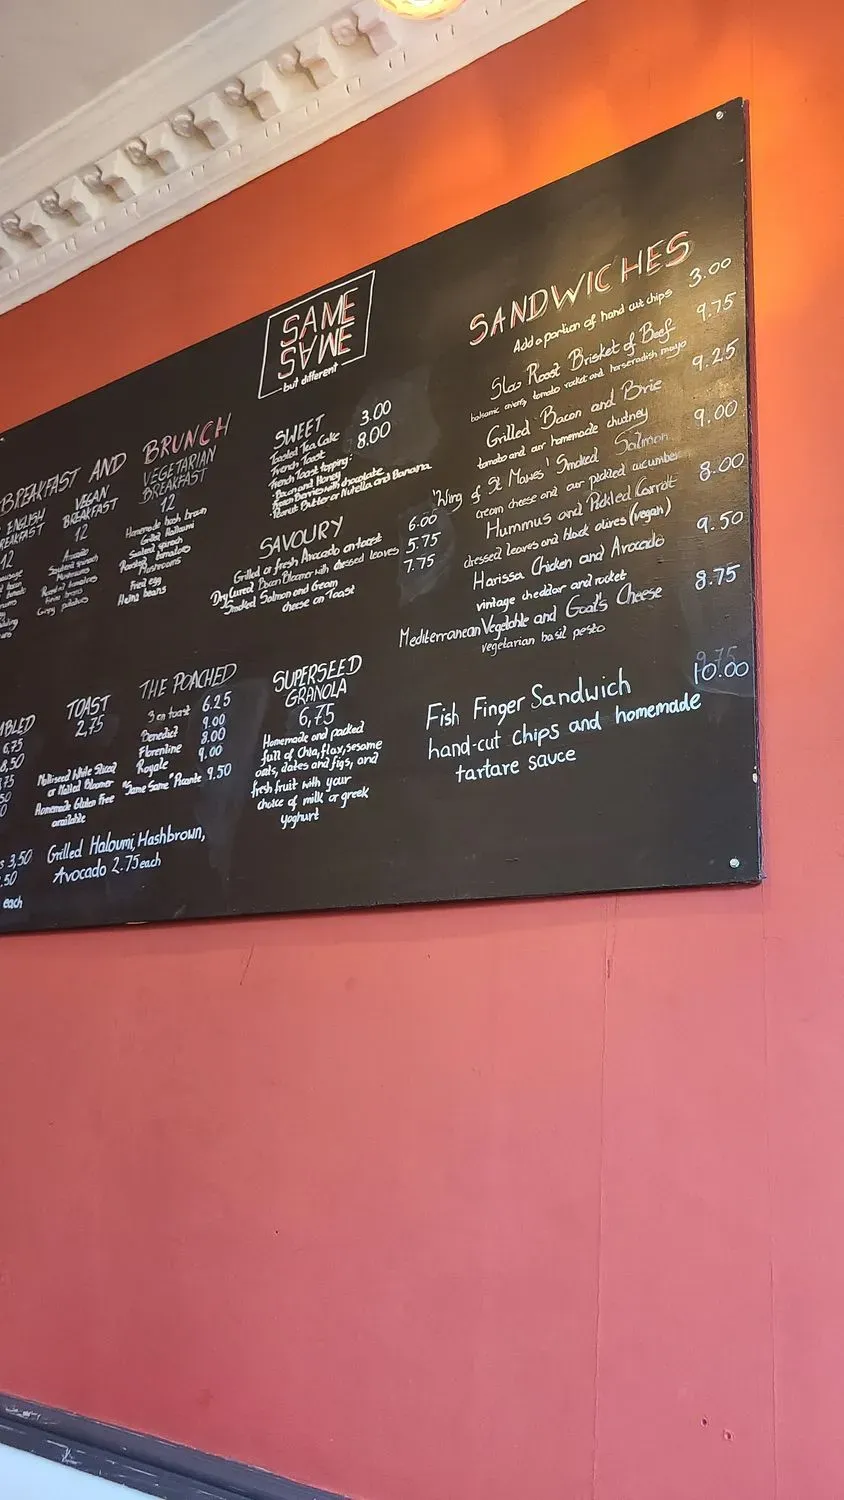 SAME
SAME
but different
BREAKFAST AND BRUNCH
ENGLISH
BREAKFAST
12
VEGAN
BREAKFAST
12
Avocado
Sauteed spinach
Mushrooms
Roasted tomatoes
beans
potatoes
VEGETARIAN
BREAKFAST
12
Homemade hash brown
Grilled Halloumi
Sauteed spinach
Roasted tomatoes
Mushrooms
Fried egg
Heinz beans
SWEET
Toasted Tea Cake 3.00
French Toast 8.00
French Toast topping:
Bacon and Honey
Berries with chocolate
Peanut Butter or Nutella and Banana
SAVOURY
Grilled or fresh Avocado on toast 6.00
Dry Cured Bacon Bloomer with dressed leaves 5.75
Smoked Salmon and Cream 7.75
cheese on Toast
TOAST
2,75
Multiseed White Sliced
or Malted Bloomer
Homemade Gluten Free
available
THE POACHED
3 on toast 6.25
Benedict 9.00
Florentine 8.00
Royale 9.00
"Same Same" Picante 9.50
SUPERSEED
GRANOLA
6,75
Homemade and packed
full of Chia, flax, sesame
oats, dates and figs, and
fresh fruit with your
choice of milk or greek
yoghurt
3,50
.50
each
Grilled Haloumi, Hashbrown,
Avocado 2.75 each
SANDWICHES
Add a portion of hand cut chips 3.00
Slow Roast Brisket of Beef 9.75
balsamic onions, tomato rocket and horseradish mayo
Grilled Bacon and Brie 9.25
tomato and our homemade chutney
'Wing of St Mawes' Smoked Salmon 9.00
cream cheese and our pickled cucumber
Hummus and Pickled Carrot 8.00
dressed leaves and black olives (vegan)
Harissa Chicken and Avocado 9.50
vintage cheddar and rocket
Mediterranean Vegetable and Goat's Cheese 8.75
vegetarian basil pesto
Fish Finger Sandwich 10.00
hand-cut chips and homemade
tartare sauce